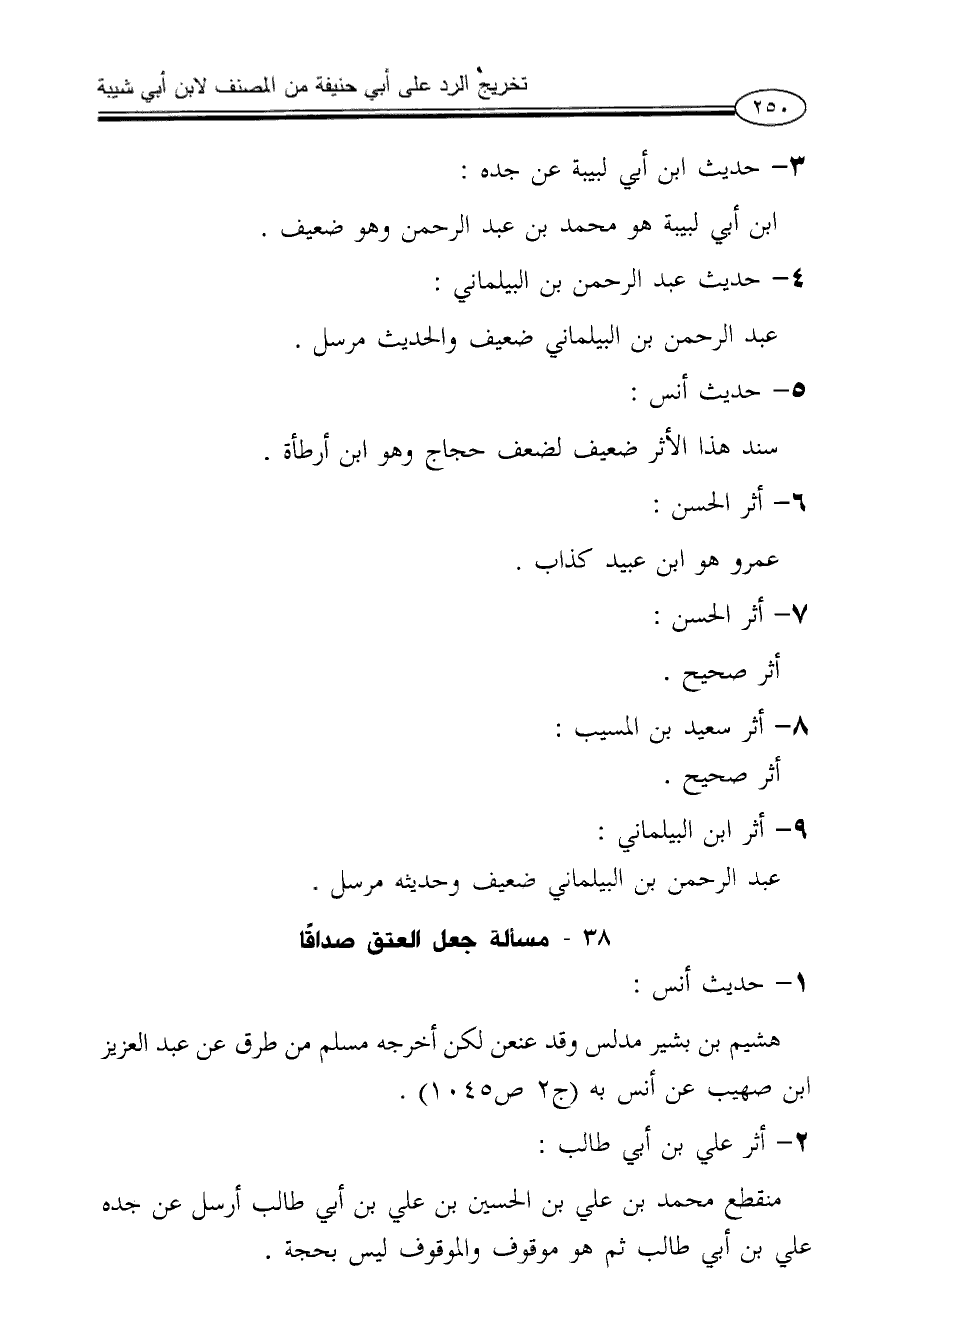 تخريج الرد على أبي حنيفة من المصنف لابن أبي شيبة
٢٥٠
٣- حديث ابن أبي لبيبة عن جده :
ابن أبي لبيبة هو محمد بن عبد الرحمن وهو ضعيف .
٤- حديث عبد الرحمن بن البيلماني :
عبد الرحمن بن البيلماني ضعيف والحديث مرسل .
٥- حديث أنس :
سند هذا الأثر ضعيف لضعف حجاج وهو ابن أرطأة .
٦- أثر الحسن :
عمرو هو ابن عبيد كذاب .
٧- أثر الحسن :
أثر صحيح .
٨- أثر سعيد بن المسيب :
أثر صحيح .
٩- أثر ابن البيلماني :
عبد الرحمن بن البيلماني ضعيف وحديثه مرسل .
٣٨ - مسألة جعل العتق صداقًا
١- حديث أنس :
هشيم بن بشير مدلس وقد عنعن لكن أخرجه مسلم من طرق عن عبد العزيز
ابن صهيب عن أنس به (ج٢ ص١٠٤٥) .
٢- أثر علي بن أبي طالب :
منقطع محمد بن علي بن الحسين بن علي بن أبي طالب أرسل عن جده
علي بن أبي طالب ثم هو موقوف والموقوف ليس بحجة .